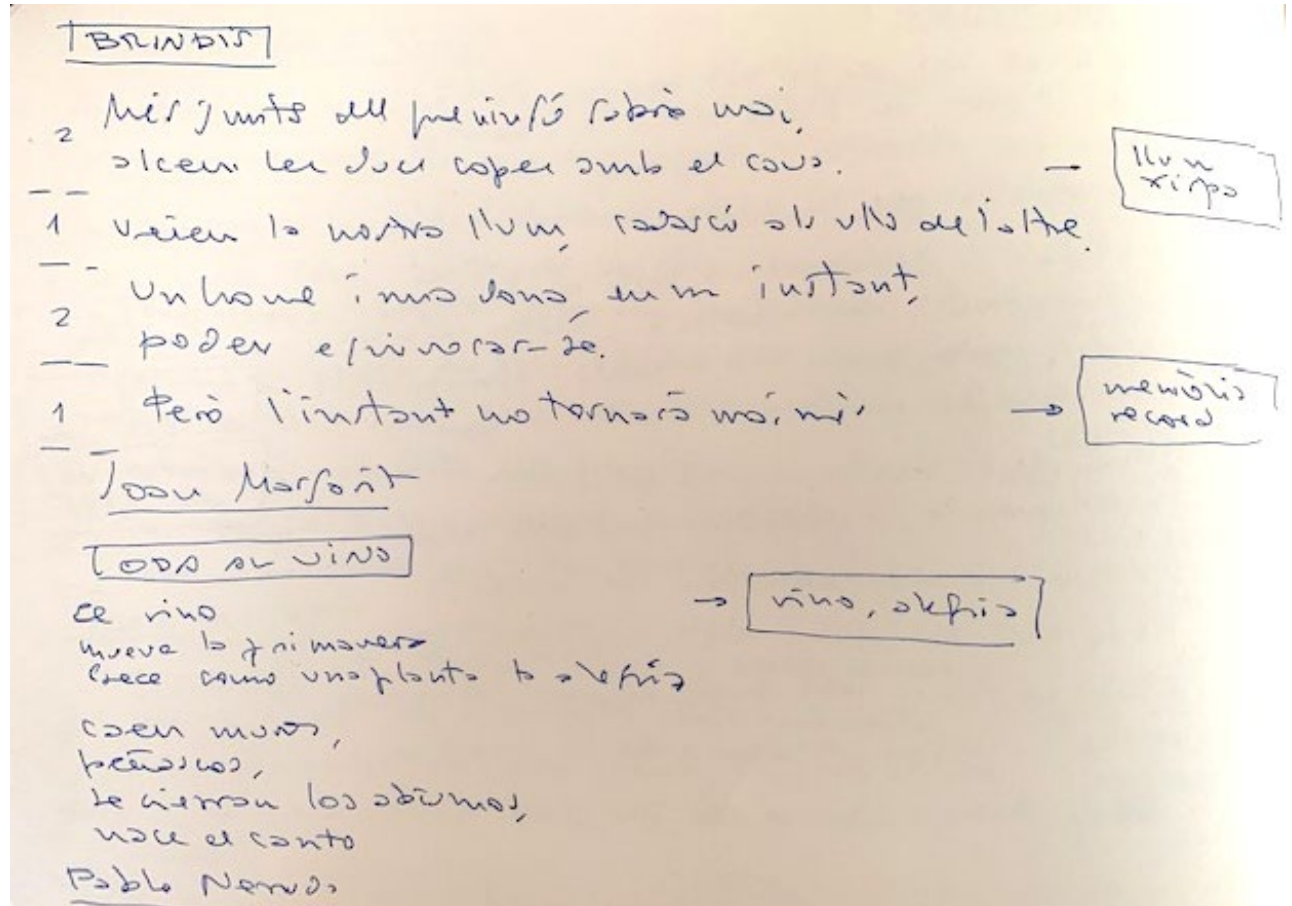 BRINDIS
2 Més junts del que ningú sabrà mai,
alcem les dues copes amb el cava. → llum
xispa
1 Veiem la nostra llum, cadascú als ulls de l'altre.
Un home i una dona, en un instant,
2 poden equivocar-se.
1 Però l'instant no tornarà mai més → memòria
record
Joan Margarit
ODA AL VINO
El vino → vino, alegria
mueve la primavera
crece como una planta la alegría
caen muros,
peñascos,
se cierran los abismos,
nace el canto
Pablo Neruda